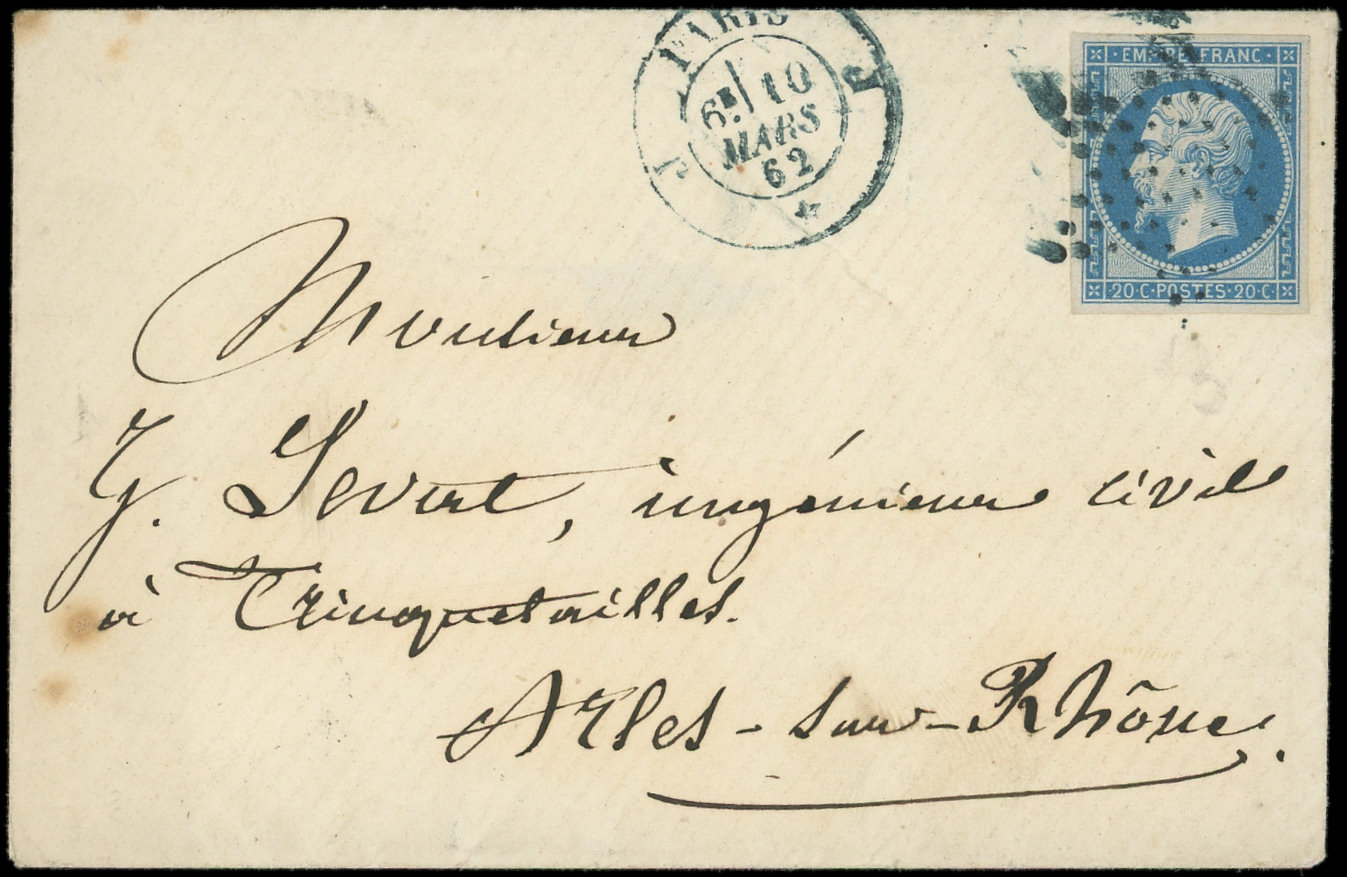 PARIS
6E 10
MARS
62
J J
EMPIRE FRANC
20·C·POSTES·20·C·
Monsieur
J. Severt, ingénieur civil
à Trinquetailles.
Arles-sur-Rhône.